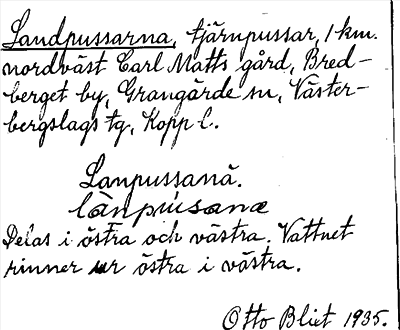 Landpussarna, tjärnpussar, 1 km.
nordväst Carl Matts gård, Bred-
berget by, Grangärde sn, Väster-
bergslags tg, Kopp l.
Lanpussanä.
lànpusanæ
Delas i östra och västra. Vattnet
rinner ur östra i västra.
Otto Bliet 1935.